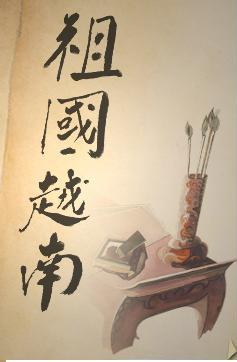 祖國越南